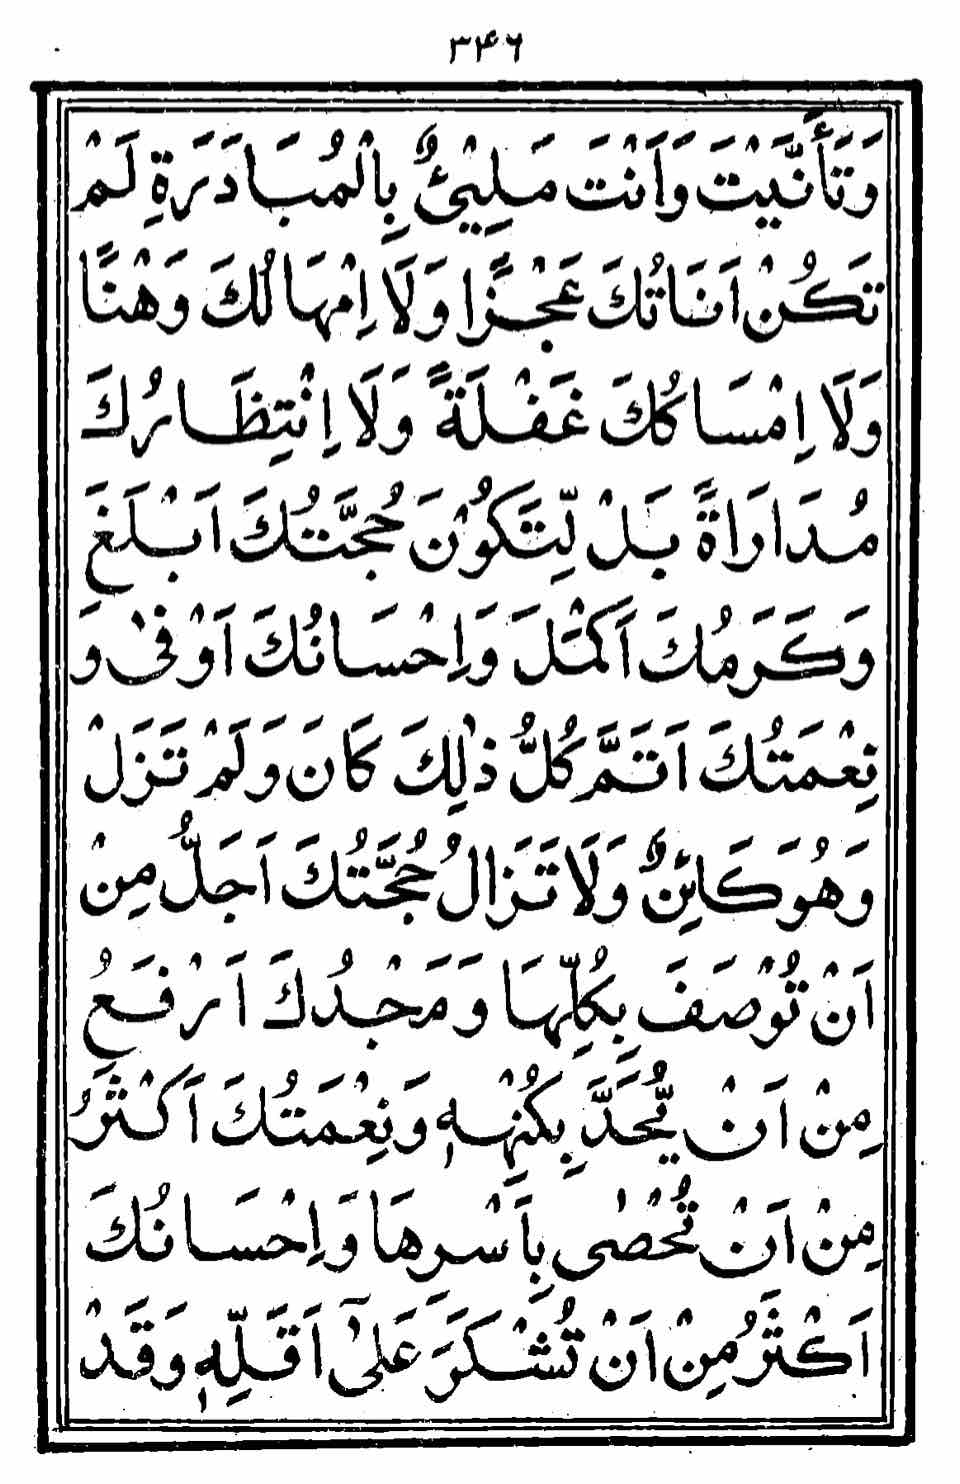 ۳۴۶
وَتَأَنَّيْتَ وَاَنْتَ مَلِيْئٌ بِالْمُبَادَرَةِ لَمْ
تَكُنْ اَنَاتُكَ عَجْزًا وَلَا اِمْهَالُكَ وَهْنًا
وَلَا اِمْسَاكُكَ غَفْلَةً وَلَا اِنْتِظَارُكَ
مُدَارَاةً بَلْ لِّتَكُوْنَ حُجَّتُكَ اَبْلَغَ
وَكَرَمُكَ اَكْمَلَ وَاِحْسَانُكَ اَوْفٰى وَ
نِعْمَتُكَ اَتَمَّ كُلُّ ذٰلِكَ كَانَ وَلَمْ تَزَلْ
وَهُوَ كَائِنٌ وَلَا تَزَالُ حُجَّتُكَ اَجَلُّ مِنْ
اَنْ تُوْصَفَ بِكُلِّهَا وَمَجْدُكَ اَرْفَعُ
مِنْ اَنْ يُّحَدَّ بِكُنْهِهٖ وَنِعْمَتُكَ اَكْثَرُ
مِنْ اَنْ تُحْصٰى بِاَسْرِهَا وَاِحْسَانُكَ
اَكْثَرُ مِنْ اَنْ تُشْكَرَ عَلٰٓى اَقَلِّهٖ وَقَدْ